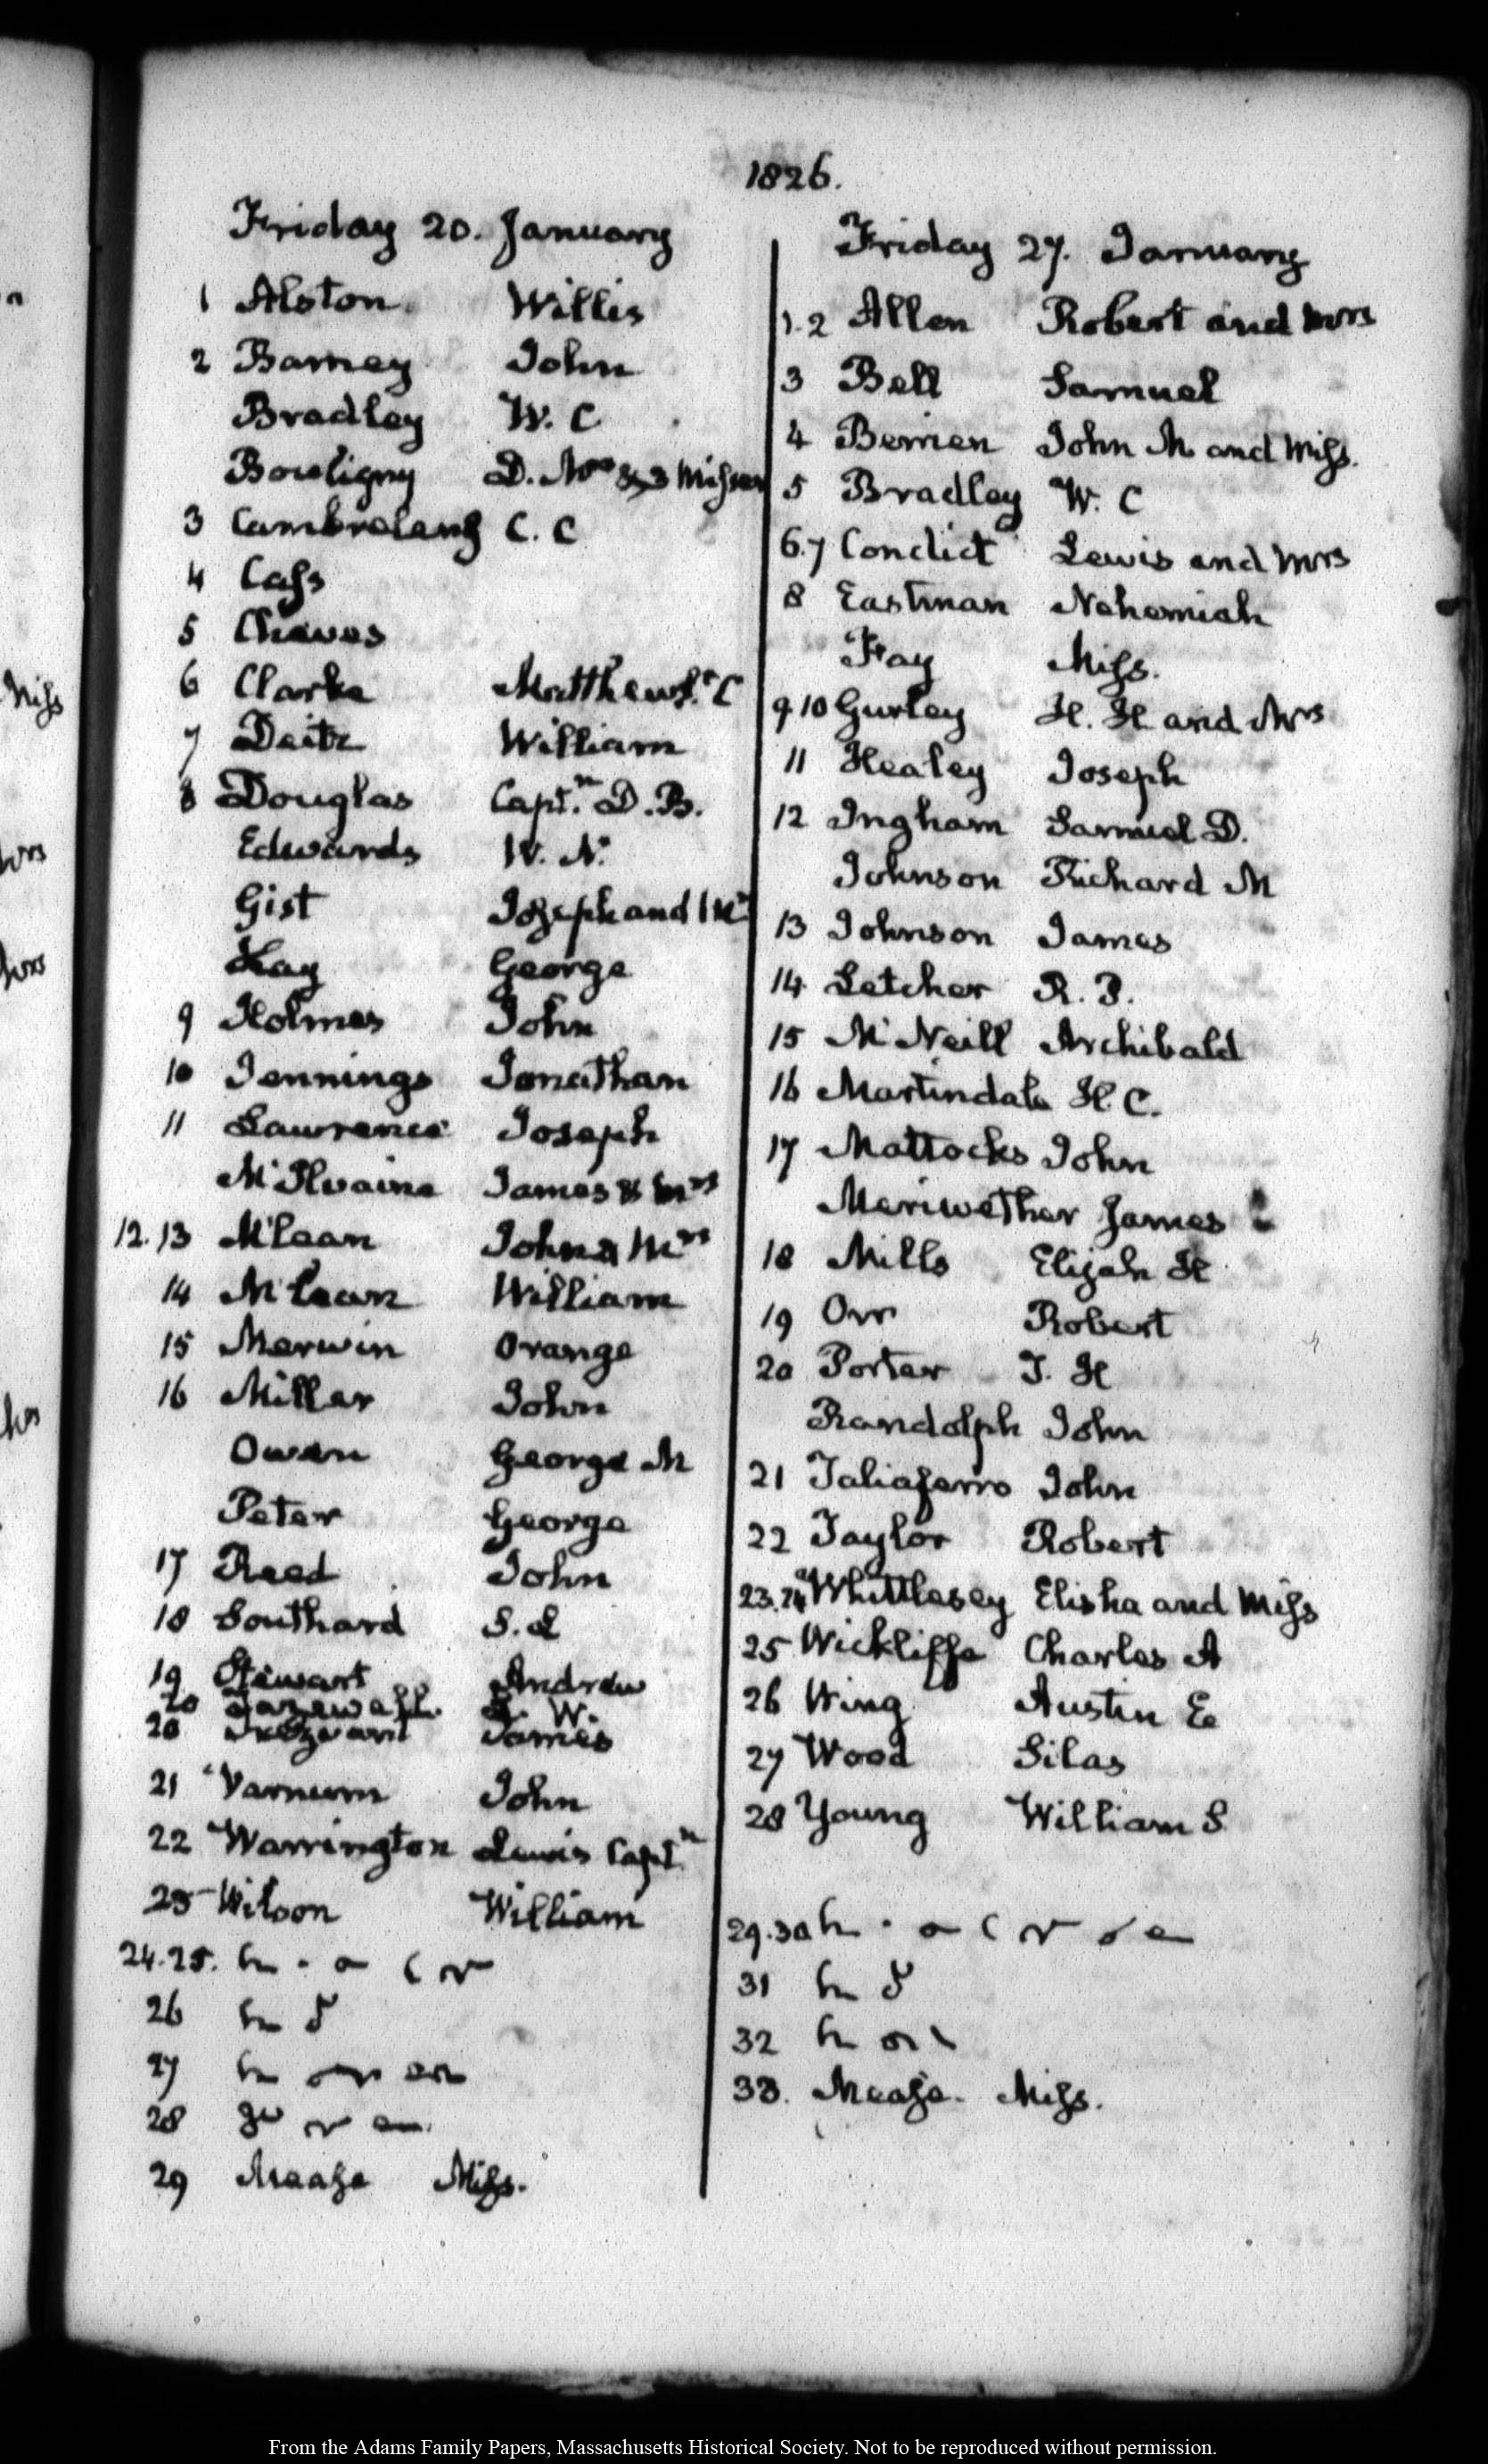 1826.
Friday 20. January
1 Alston Willis
2 Barney John
Bradley W. C
Bouligny D. Mrs & 3 Misses
3 Cambreleng C. C
4 Cass
5 Cheves
6 Clarke Matthew St. C
7 Deitz William
8 Douglas Capt.n D. B.
Edwards W. N.
Gist Joseph and Mrs
Hay George
9 Holmes John
10 Jennings Jonathan
11 Lawrence Joseph
McIlvaine James & Mrs
12. 13 McLean John & Mrs
14 McLean William
15 Merwin Orange
16 Miller John
Owen George M
Peter George
17 Reed John
18 Southard S. L
19 Stewart Andrew
20 Tazewell L. W.
20 Trezvant James
21 Varnum John
22 Warrington Lewis Capt.n
23 Wilson William
24. 25.
26
27
28
29 Mease Miss.
Friday 27. January
1. 2 Allen Robert and Mrs
3 Bell Samuel
4 Berrien John M and Miss.
5 Bradley W. C
6. 7 Condict Lewis and Mrs
8 Eastman Nehemiah
Fay Miss.
9 10 Gurley H. H and Mrs
11 Healey Joseph
12 Ingham Samuel D.
Johnson Richard M
13 Johnson James
14 Letcher R. P.
15 McNeill Archibald
16 Martindale H C.
17 Mattocks John
Meriwether James
18 Mills Elijah H
19 Orr Robert
20 Porter T. H
Randolph John
21 Taliaferro John
22 Taylor Robert
23. 24 Whittlesey Elisha and Miss
25 Wickliffe Charles A
26 Wing Austin E
27 Wood Silas
28 Young William S
29. 30
31
32
33. Mease. Miss.
From the Adams Family Papers, Massachusetts Historical Society. Not to be reproduced without permission.